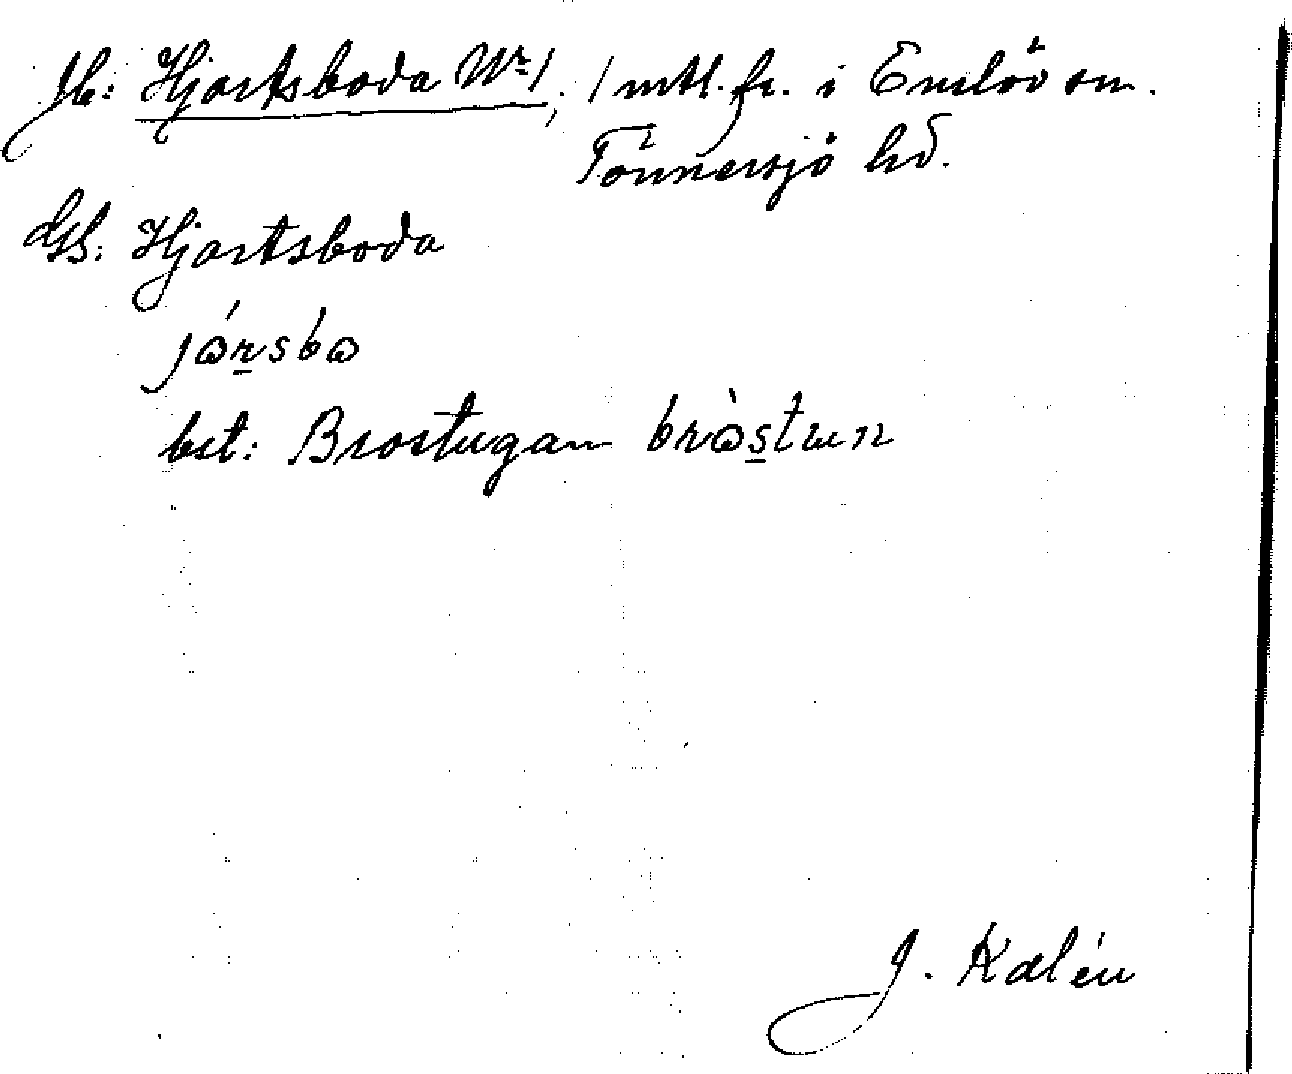 Jb: Hjortsboda Nr 1, 1 mtl. fr. i Enslöv sn.
Tönnersjö hd.
GS: Hjortsboda
jórsbo
bst: Brostugan bròstun
J. Kalén